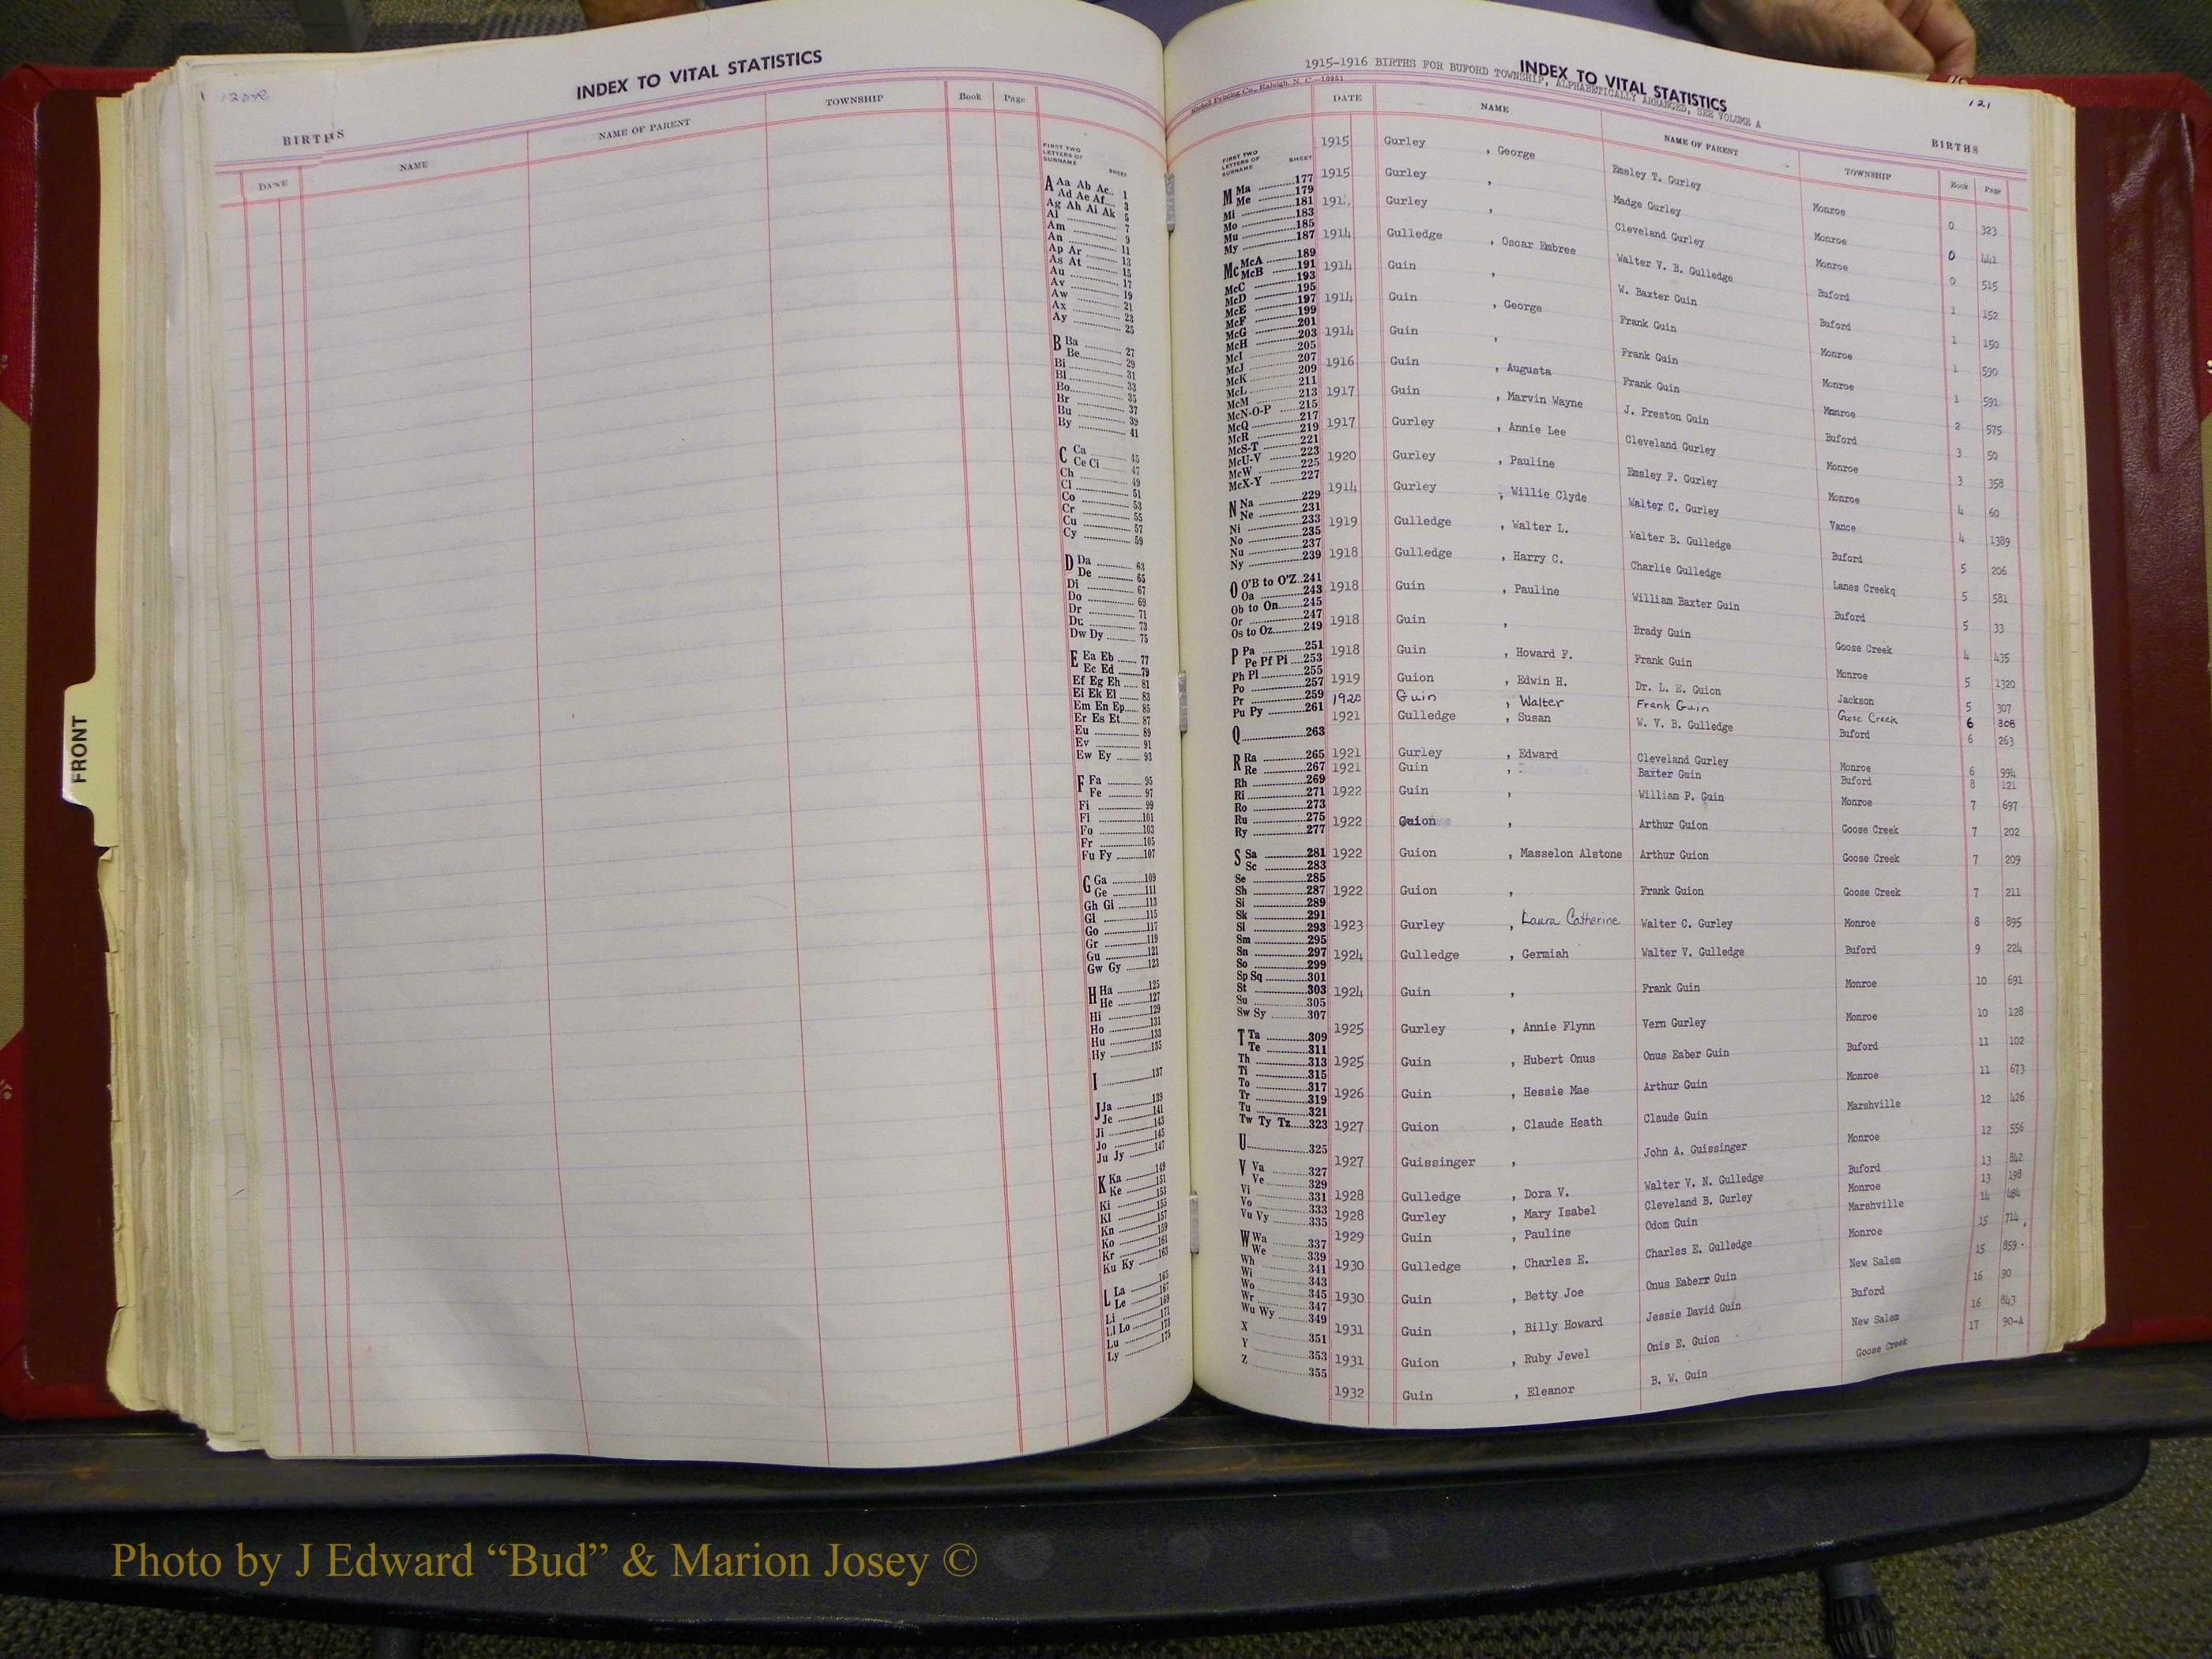 INDEX TO VITAL STATISTICS
BIRTHS
DATE NAME NAME OF PARENT TOWNSHIP Book Page
FIRST TWO LETTERS OF SURNAME SHEET
A Aa Ab Ac 1
Ad Ae Af 3
Ag Ah Ai Ak 5
Al 7
Am 9
An 11
Ap Ar 13
As At 15
Au 17
Av 19
Aw 21
Ax 23
Ay 25
B Ba 27
Be 29
Bi 31
Bl 33
Bo 35
Br 37
Bu 39
By 41
C Ca 45
Ce Ci 47
Ch 49
Cl 51
Co 53
Cr 55
Cu 57
Cy 59
D Da 63
De 65
Di 67
Do 69
Dr 71
Du 73
Dw Dy 75
E Ea Eb 77
Ec Ed 79
Ef Eg Eh 81
Ei Ek El 83
Em En Ep 85
Er Es Et 87
Eu 89
Ev 91
Ew Ey 93
F Fa 95
Fe 97
Fi 99
Fl 101
Fo 103
Fr 105
Fu Fy 107
G Ga 109
Ge 111
Gh Gi 113
Gl 115
Go 117
Gr 119
Gu 121
Gw Gy 123
H Ha 125
He 127
Hi 129
Ho 131
Hu 133
Hy 135
I 137
J Ja 139
Je 141
Ji 143
Jo 145
Ju Jy 147
K Ka 149
Ke 151
Ki 153
Kl 155
Kn 157
Ko 159
Kr 161
Ku Ky 163
L La 165
Le 167
Li 169
Ll Lo 171
Lu 173
Ly 175
FRONT
1915-1916 BIRTHS FOR BUFORD TOWNSHIP, ALPHABETICALLY ARRANGED, SEE VOLUME A
INDEX TO VITAL STATISTICS
121
Printing Co., Raleigh, N. C.—10951
BIRTHS
DATE NAME NAME OF PARENT TOWNSHIP Book Page
FIRST TWO LETTERS OF SURNAME SHEET
M Ma 177
Me 179
Mi 181
Mo 183
Mu 185
My 187
Mc McA 189
McB 191
McC 193
McD 195
McE 197
McF 199
McG 201
McH 203
McI 205
McJ 207
McK 209
McL 211
McM 213
McN-O-P 215
McQ 217
McR 219
McS-T 221
McU-V 223
McW 225
McX-Y 227
N Na 229
Ne 231
Ni 233
No 235
Nu 237
Ny 239
O O'B to O'Z 241
Oa 243
Ob to On 245
Or 247
Os to Oz 249
P Pa 251
Pe Pf Pi 253
Ph Pl 255
Po 257
Pr 259
Pu Py 261
Q 263
R Ra 265
Re 267
Rh 269
Ri 271
Ro 273
Ru 275
Ry 277
S Sa 281
Sc 283
Se 285
Sh 287
Si 289
Sk 291
Sl 293
Sm 295
Sn 297
So 299
Sp Sq 301
St 303
Su 305
Sw Sy 307
T Ta 309
Te 311
Th 313
Ti 315
To 317
Tr 319
Tu 321
Tw Ty Tz 323
U 325
V Va 327
Ve 329
Vi 331
Vo 333
Vu Vy 335
W Wa 337
We 339
Wh 341
Wi 343
Wo 345
Wr 347
Wu Wy 349
X 351
Y 353
Z 355
1915 Gurley , George Emsley T. Gurley Monroe 0 323
1915 Gurley , Madge Gurley Monroe 0 441
191 Gurley , Cleveland Gurley Monroe 0 515
1914 Gulledge , Oscar Embree Walter V. B. Gulledge Buford 1 152
1914 Guin , W. Baxter Guin Buford 1 150
1914 Guin , George Frank Guin Monroe 1 590
1914 Guin , Frank Guin Monroe 1 591
1916 Guin , Augusta Frank Guin Monroe 2 575
1917 Guin , Marvin Wayne J. Preston Guin Buford 3 50
1917 Gurley , Annie Lee Cleveland Gurley Monroe 3 358
1920 Gurley , Pauline Emsley F. Gurley Monroe 4 60
1914 Gurley , Willie Clyde Walter C. Gurley Vance 4 1389
1919 Gulledge , Walter L. Walter B. Gulledge Buford 5 206
1918 Gulledge , Harry C. Charlie Gulledge Lanes Creekq 5 581
1918 Guin , Pauline William Baxter Guin Buford 5 33
1918 Guin , Brady Guin Goose Creek 4 435
1918 Guin , Howard F. Frank Guin Monroe 5 1320
1919 Guion , Edwin H. Dr. L. E. Guion Jackson 5 307
1920 Guin , Walter Frank Guin Goose Creek 6 308
1921 Gulledge , Susan W. V. B. Gulledge Buford 6 263
1921 Gurley , Edward Cleveland Gurley Monroe 6 994
1921 Guin , Baxter Guin Buford 8 121
1922 Guin , William P. Guin Monroe 7 697
1922 Guion , Arthur Guion Goose Creek 7 202
1922 Guion , Masselon Alstone Arthur Guion Goose Creek 7 209
1922 Guion , Frank Guion Goose Creek 7 211
1923 Gurley , Laura Catherine Walter C. Gurley Monroe 8 895
1924 Gulledge , Germiah Walter V. Gulledge Buford 9 224
1924 Guin , Frank Guin Monroe 10 691
1925 Gurley , Annie Flynn Vern Gurley Monroe 10 128
1925 Guin , Hubert Onus Onus Eaber Guin Buford 11 102
1926 Guin , Hessie Mae Arthur Guin Monroe 11 673
1927 Guion , Claude Heath Claude Guin Marshville 12 426
1927 Guissinger , John A. Guissinger Monroe 12 556
1928 Gulledge , Dora V. Walter V. N. Gulledge Buford 13 842
1928 Gurley , Mary Isabel Cleveland B. Gurley Monroe 13 198
1929 Guin , Pauline Odom Guin Marshville 14 484
1930 Gulledge , Charles E. Charles E. Gulledge Monroe 15 714
1930 Guin , Betty Joe Onus Eaberr Guin New Salem 15 859
1931 Guin , Billy Howard Jessie David Guin Buford 16 90
1931 Guion , Ruby Jewel Onis E. Guion New Salem 16 843
1932 Guin , Eleanor B. W. Guin Goose Creek 17 90-A
Photo by J Edward “Bud” & Marion Josey ©